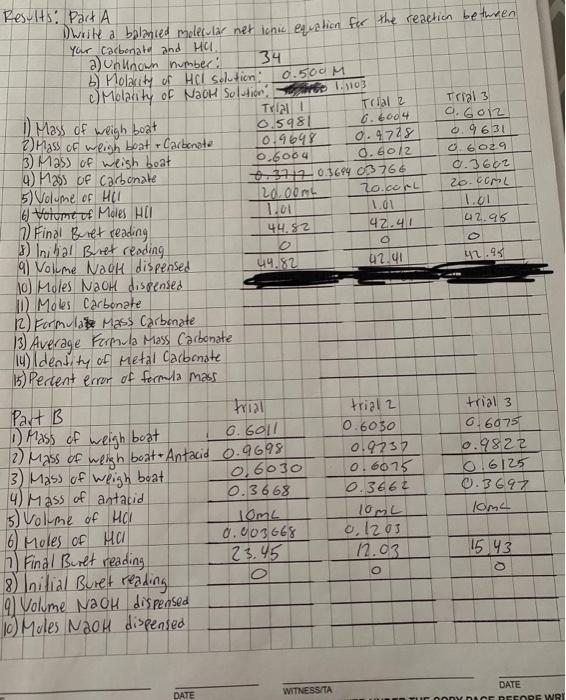 Results: Part A
1) Write a balanced molecular net ionic equation for the reaction between
your carbonate and HCl.
a) Unknown number: 34
b) Molarity of HCl solution: 0.500 M
c) Molarity of NaOH Solution: 1.1103
Trial 1 Trial 2 Trial 3
1) Mass of weigh boat 0.5981 0.6004 0.6012
2) Mass of weigh boat + Carbonate 0.9698 0.9728 0.9631
3) Mass of weigh boat 0.6064 0.6012 0.6029
4) Mass of Carbonate 0.3717 0.3694 0.3766 0.3602
5) Volume of HCl 20.00mL 20.00mL 20.00mL
6) Volume of Moles HCl 1.01 1.01 1.01
7) Final Buret reading 44.82 42.41 42.95
8) Initial Buret reading 0 0 0
9) Volume NaOH dispensed 44.82 42.41 42.95
10) Moles NaOH dispensed
11) Moles Carbonate
12) Formula Mass Carbonate
13) Average Formula Mass Carbonate
14) Identity of Metal Carbonate
15) Percent error of formula mass
Part B trial trial 2 trial 3
1) Mass of weigh boat 0.6011 0.6030 0.6075
2) Mass of weigh boat + Antacid 0.9698 0.9737 0.9822
3) Mass of weigh boat 0.6030 0.6075 0.6125
4) Mass of antacid 0.3668 0.3662 0.3697
5) Volume of HCl 10mL 10mL 10mL
6) Moles of HCl 0.003668 0.1203
7) Final Buret reading 23.45 12.03 15.43
8) Initial Buret reading 0 0 0
9) Volume NaOH dispensed
10) Moles NaOH dispensed
DATE WITNESS/TA DATE